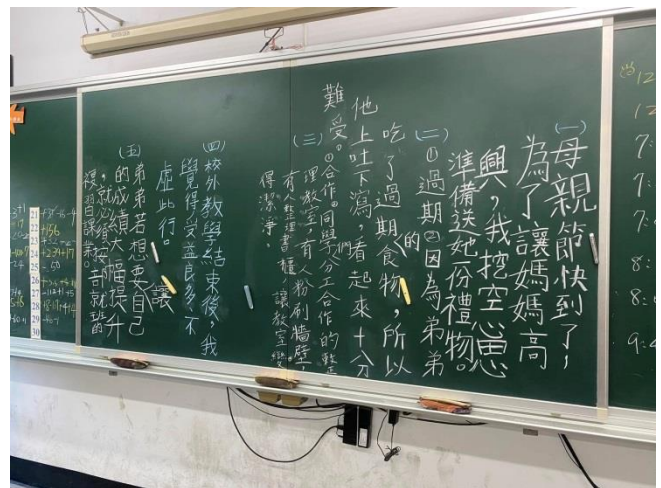 12
12
7:
7:
8:
8:
9:
(一)母親節快到了，
為了讓媽媽高
興，我挖空心思
準備送她份禮物。
(二)①過期②因為弟弟
吃了過期的食物，所以
他上吐下瀉，看起來十分
難受。
(三)①合作。同學們分工合作的整
理教室，有人粉刷牆壁，
有人整理書櫃，讓教室變
得潔淨。
(四)校外教學結束後，我
覺得受益良多，不
虛此行。
(五)弟弟若想要讓自己
的成績大幅提升
，就必須按部就班
複習課業。
21
22
23
24
25
26
27
28
29
30